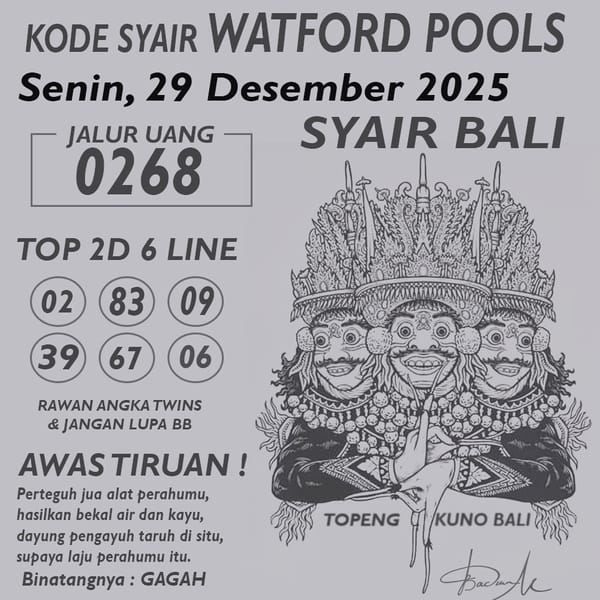 KODE SYAIR WATFORD POOLS
Senin, 29 Desember 2025
JALUR UANG
0268
SYAIR BALI
TOP 2D 6 LINE
02 83 09
39 67 06
RAWAN ANGKA TWINS
& JANGAN LUPA BB
AWAS TIRUAN !
Perteguh jua alat perahumu,
hasilkan bekal air dan kayu,
dayung pengayuh taruh di situ,
supaya laju perahumu itu.
Binatangnya : GAGAH
TOPENG KUNO BALI